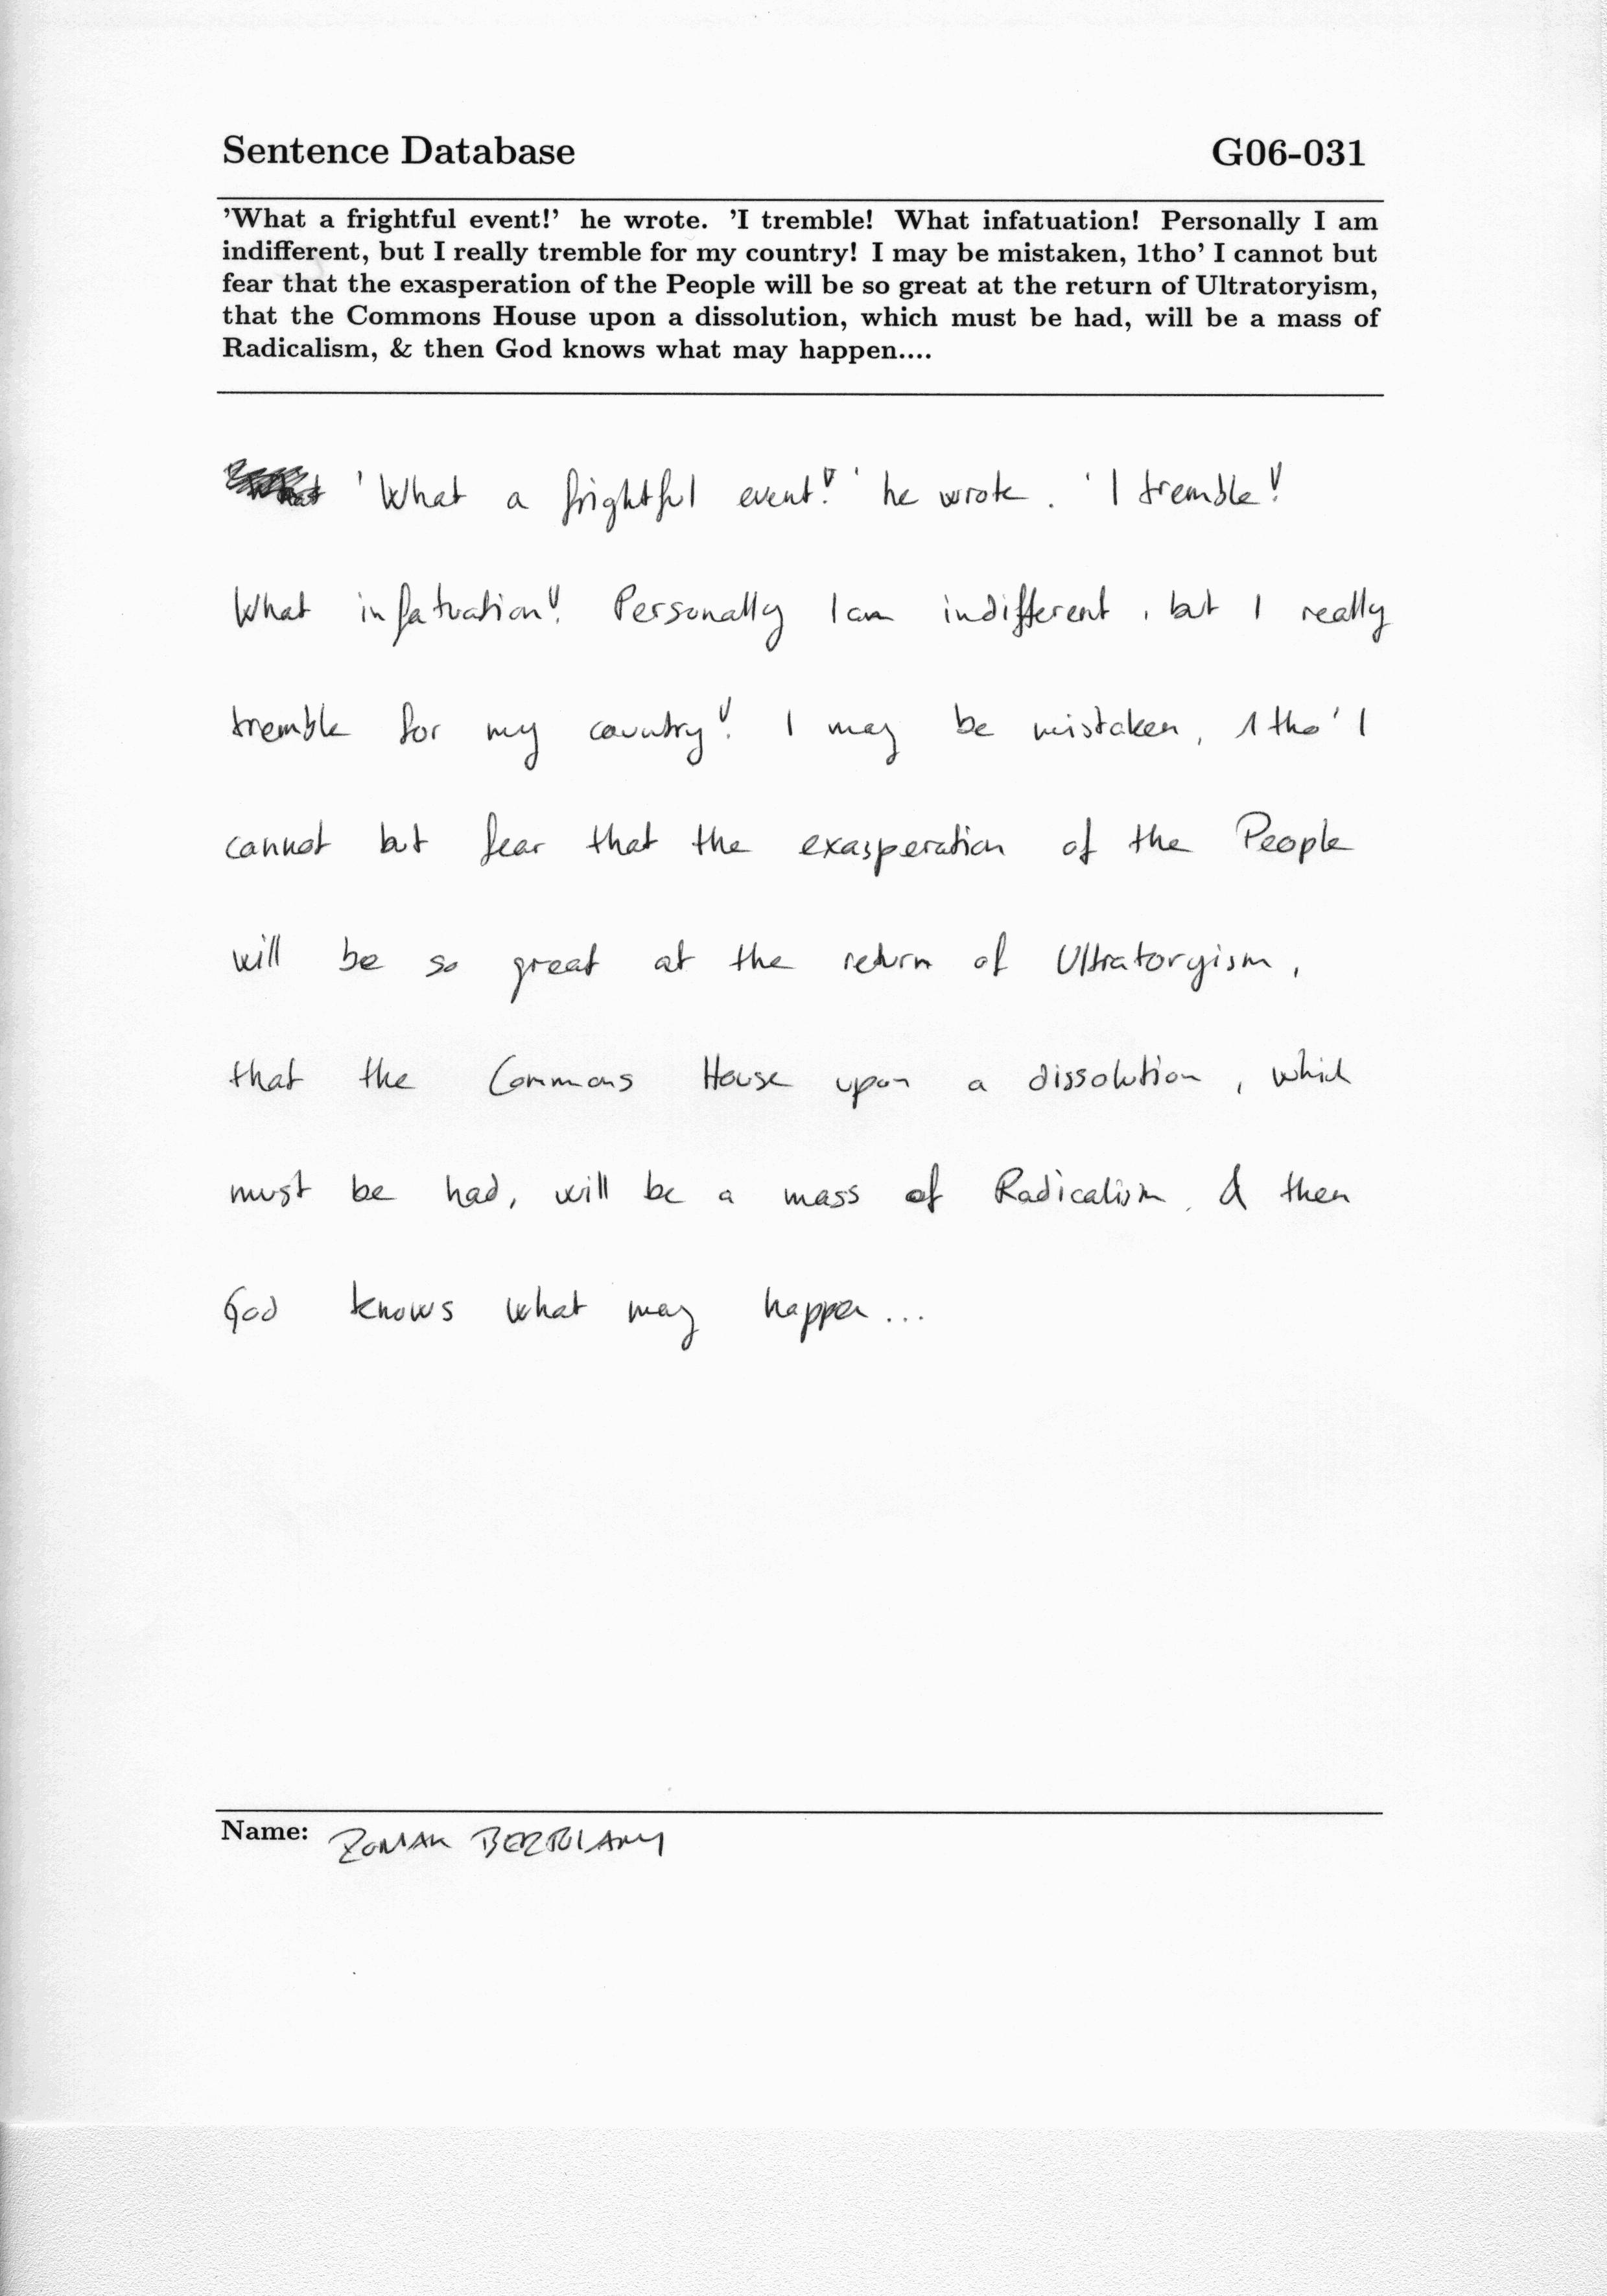 Sentence Database G06-031
'What a frightful event!' he wrote. 'I tremble! What infatuation! Personally I am
indifferent, but I really tremble for my country! I may be mistaken, 1tho' I cannot but
fear that the exasperation of the People will be so great at the return of Ultratoryism,
that the Commons House upon a dissolution, which must be had, will be a mass of
Radicalism, & then God knows what may happen....
'What a frightful event!' he wrote. 'I tremble!
What infatuation! Personally I am indifferent, but I really
tremble for my country! I may be mistaken, 1tho' I
cannot but fear that the exasperation of the People
will be so great at the return of Ultratoryism,
that the Commons House upon a dissolution, which
must be had, will be a mass of Radicalism, & then
God knows what may happen...
Name: